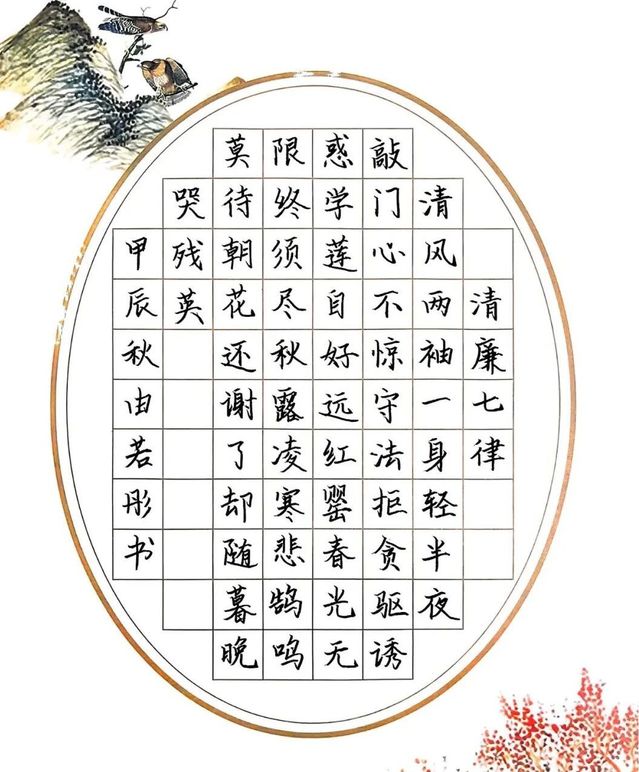 清廉七律
清风两袖一身轻半夜
敲门心不惊守法拒贪驱诱
惑学莲自好远红罂春光无
限终须尽秋露凌寒悲鹄鸣
莫待朝花还谢了却随暮晚
哭残英
甲辰秋由若彤书